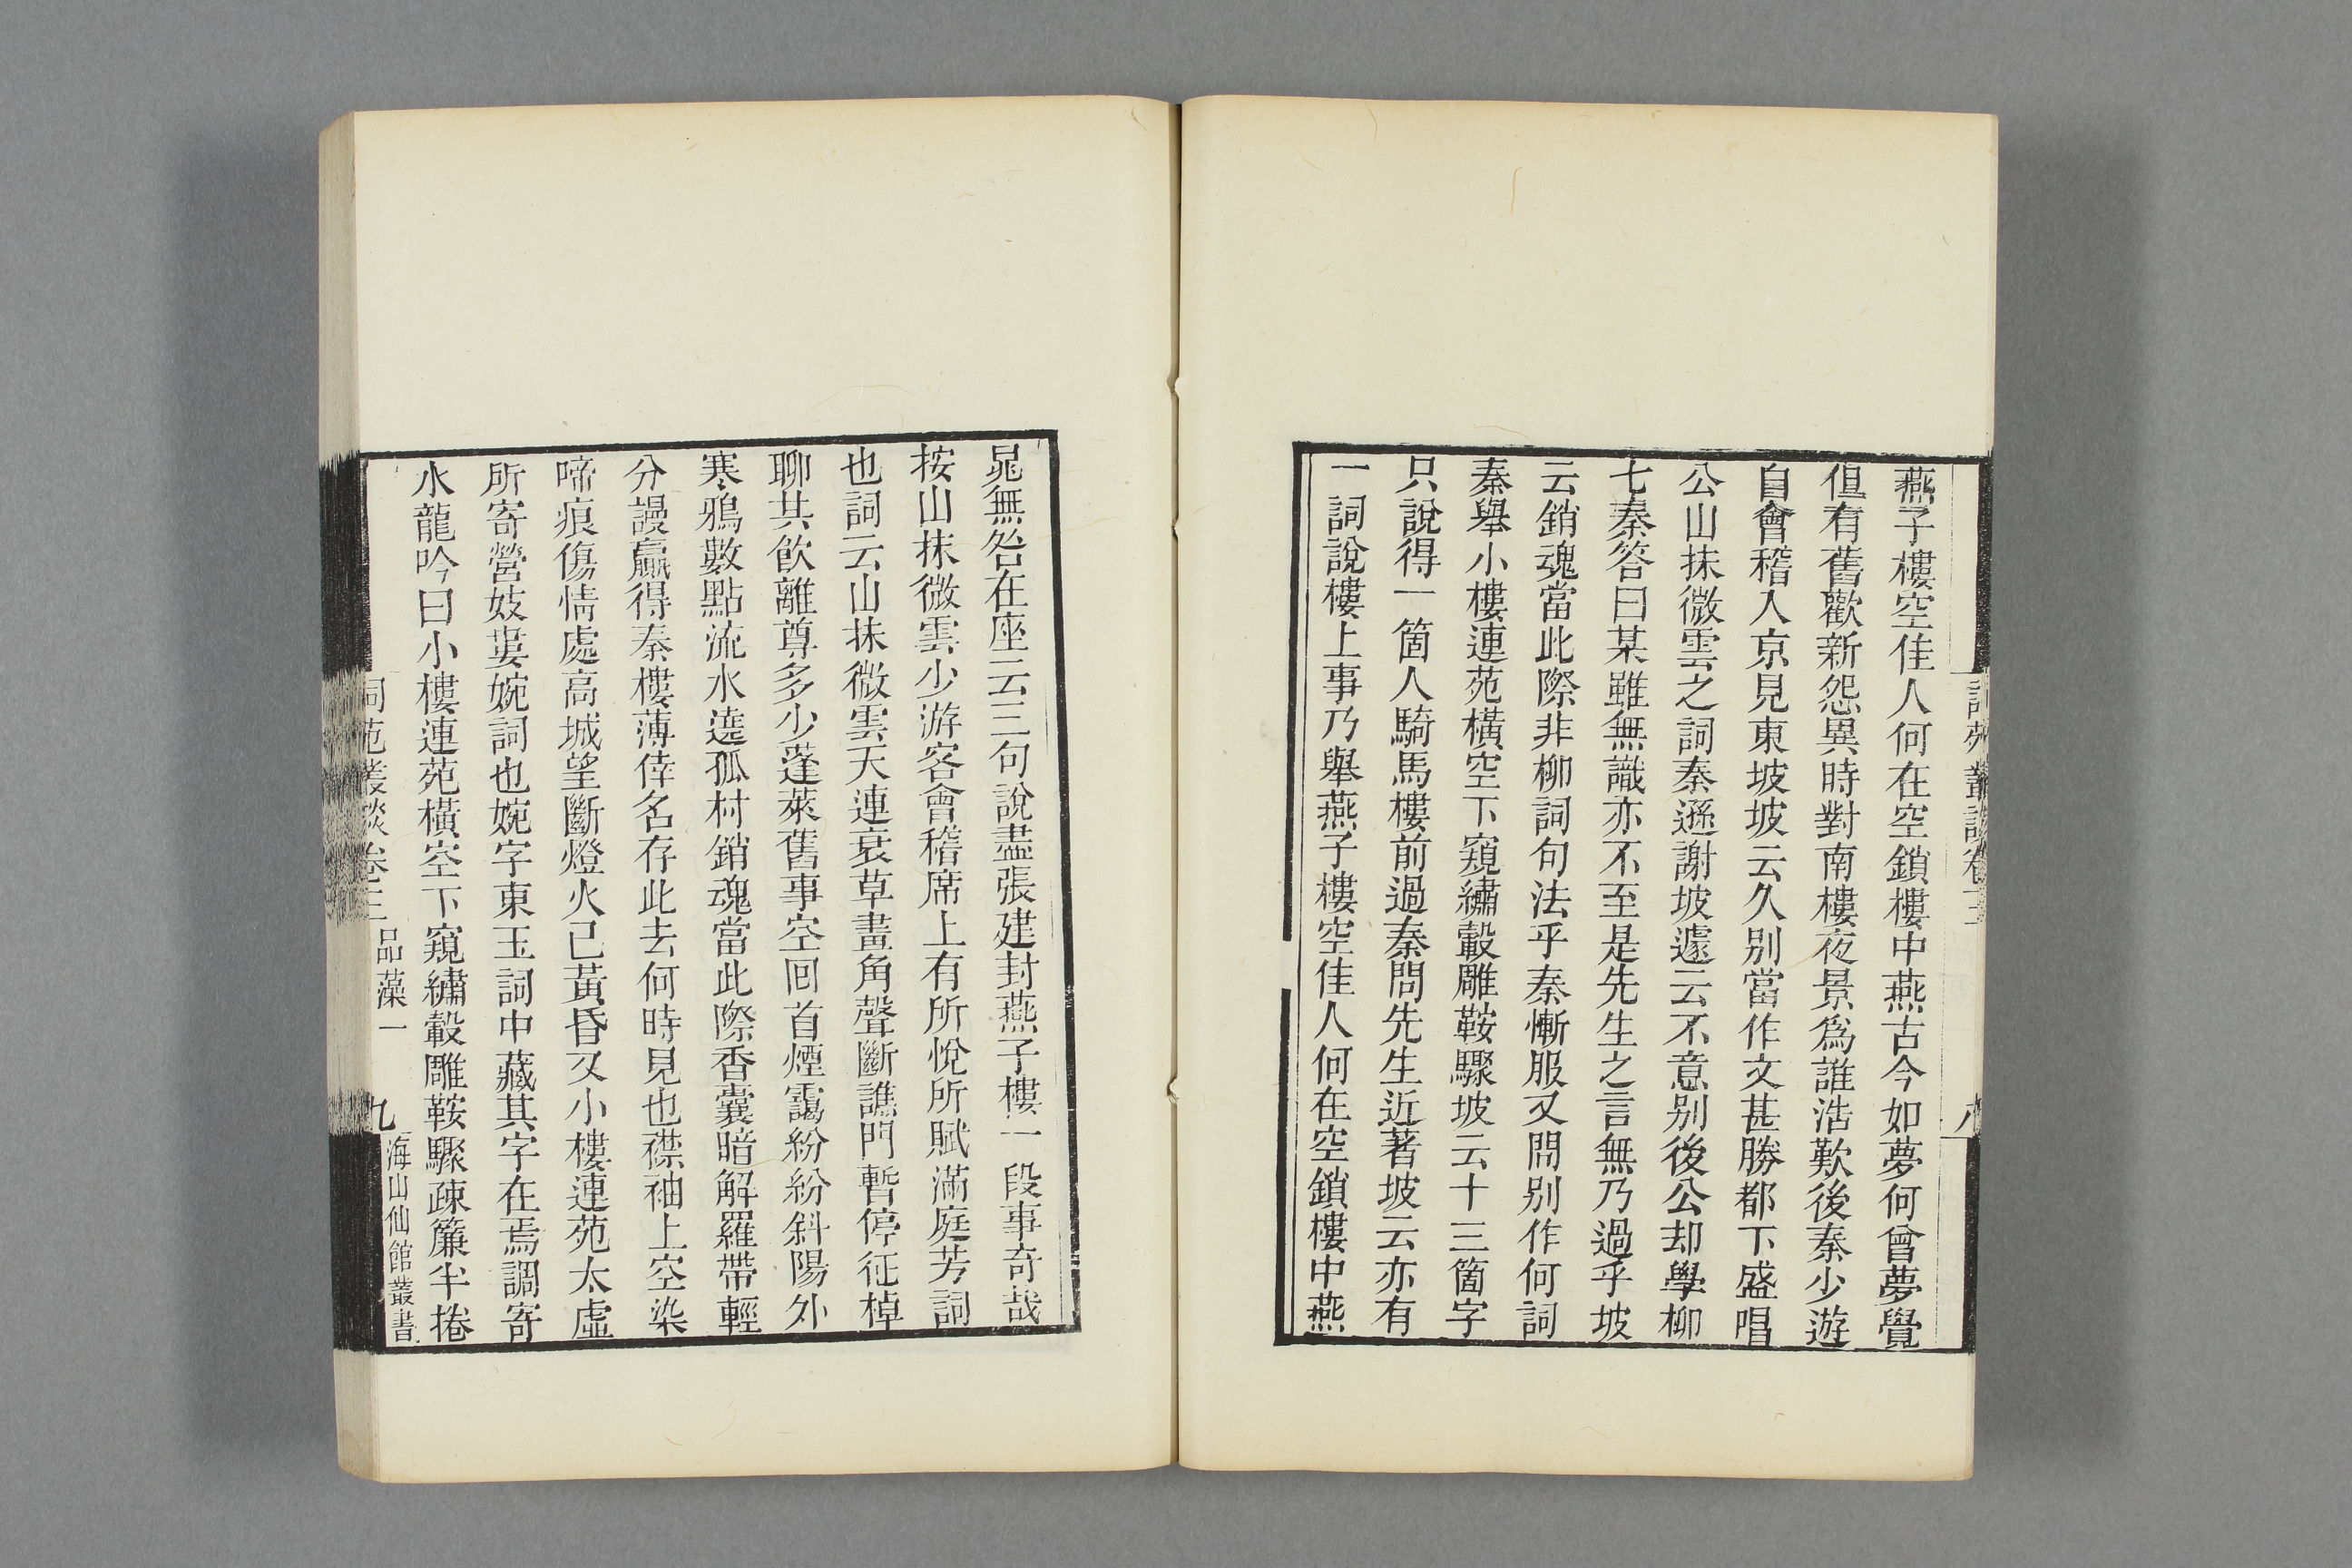 燕子樓空佳人何在空鎖樓中燕古今如夢何曾夢覺
但有舊歡新怨異時對南樓夜景爲誰浩歎後秦少遊
自會稽入京見東坡坡云久別當作文甚勝都下盛唱
公山抹微雲之詞秦遜謝坡遽云不意別後公却學柳
七秦答曰某雖無識亦不至是先生之言無乃過乎坡
云銷魂當此際非柳詞句法乎秦慚服又問別作何詞
秦舉小樓連苑橫空下窺繡轂雕鞍驟坡云十三箇字
只說得一箇人騎馬樓前過秦問先生近著坡云亦有
一詞說樓上事乃舉燕子樓空佳人何在空鎖樓中燕
晁無咎在座云三句說盡張建封燕子樓一段事奇哉
按山抹微雲少游客會稽席上有所悅所賦滿庭芳詞
也詞云山抹微雲天連衰草畫角聲斷譙門暫停征棹
聊共飲離尊多少蓬萊舊事空回首煙靄紛紛斜陽外
寒鴉數點流水遶孤村銷魂當此際香囊暗解羅帶輕
分謾贏得秦樓薄倖名存此去何時見也襟袖上空染
啼痕傷情處高城望斷燈火已黃昏又小樓連苑太虛
所寄營妓婁婉詞也婉字東玉詞中藏其字在焉調寄
水龍吟曰小樓連苑橫空下窺繡轂雕鞍驟疎簾半捲
詞苑叢談卷三 品藻一 九 海山仙館叢書